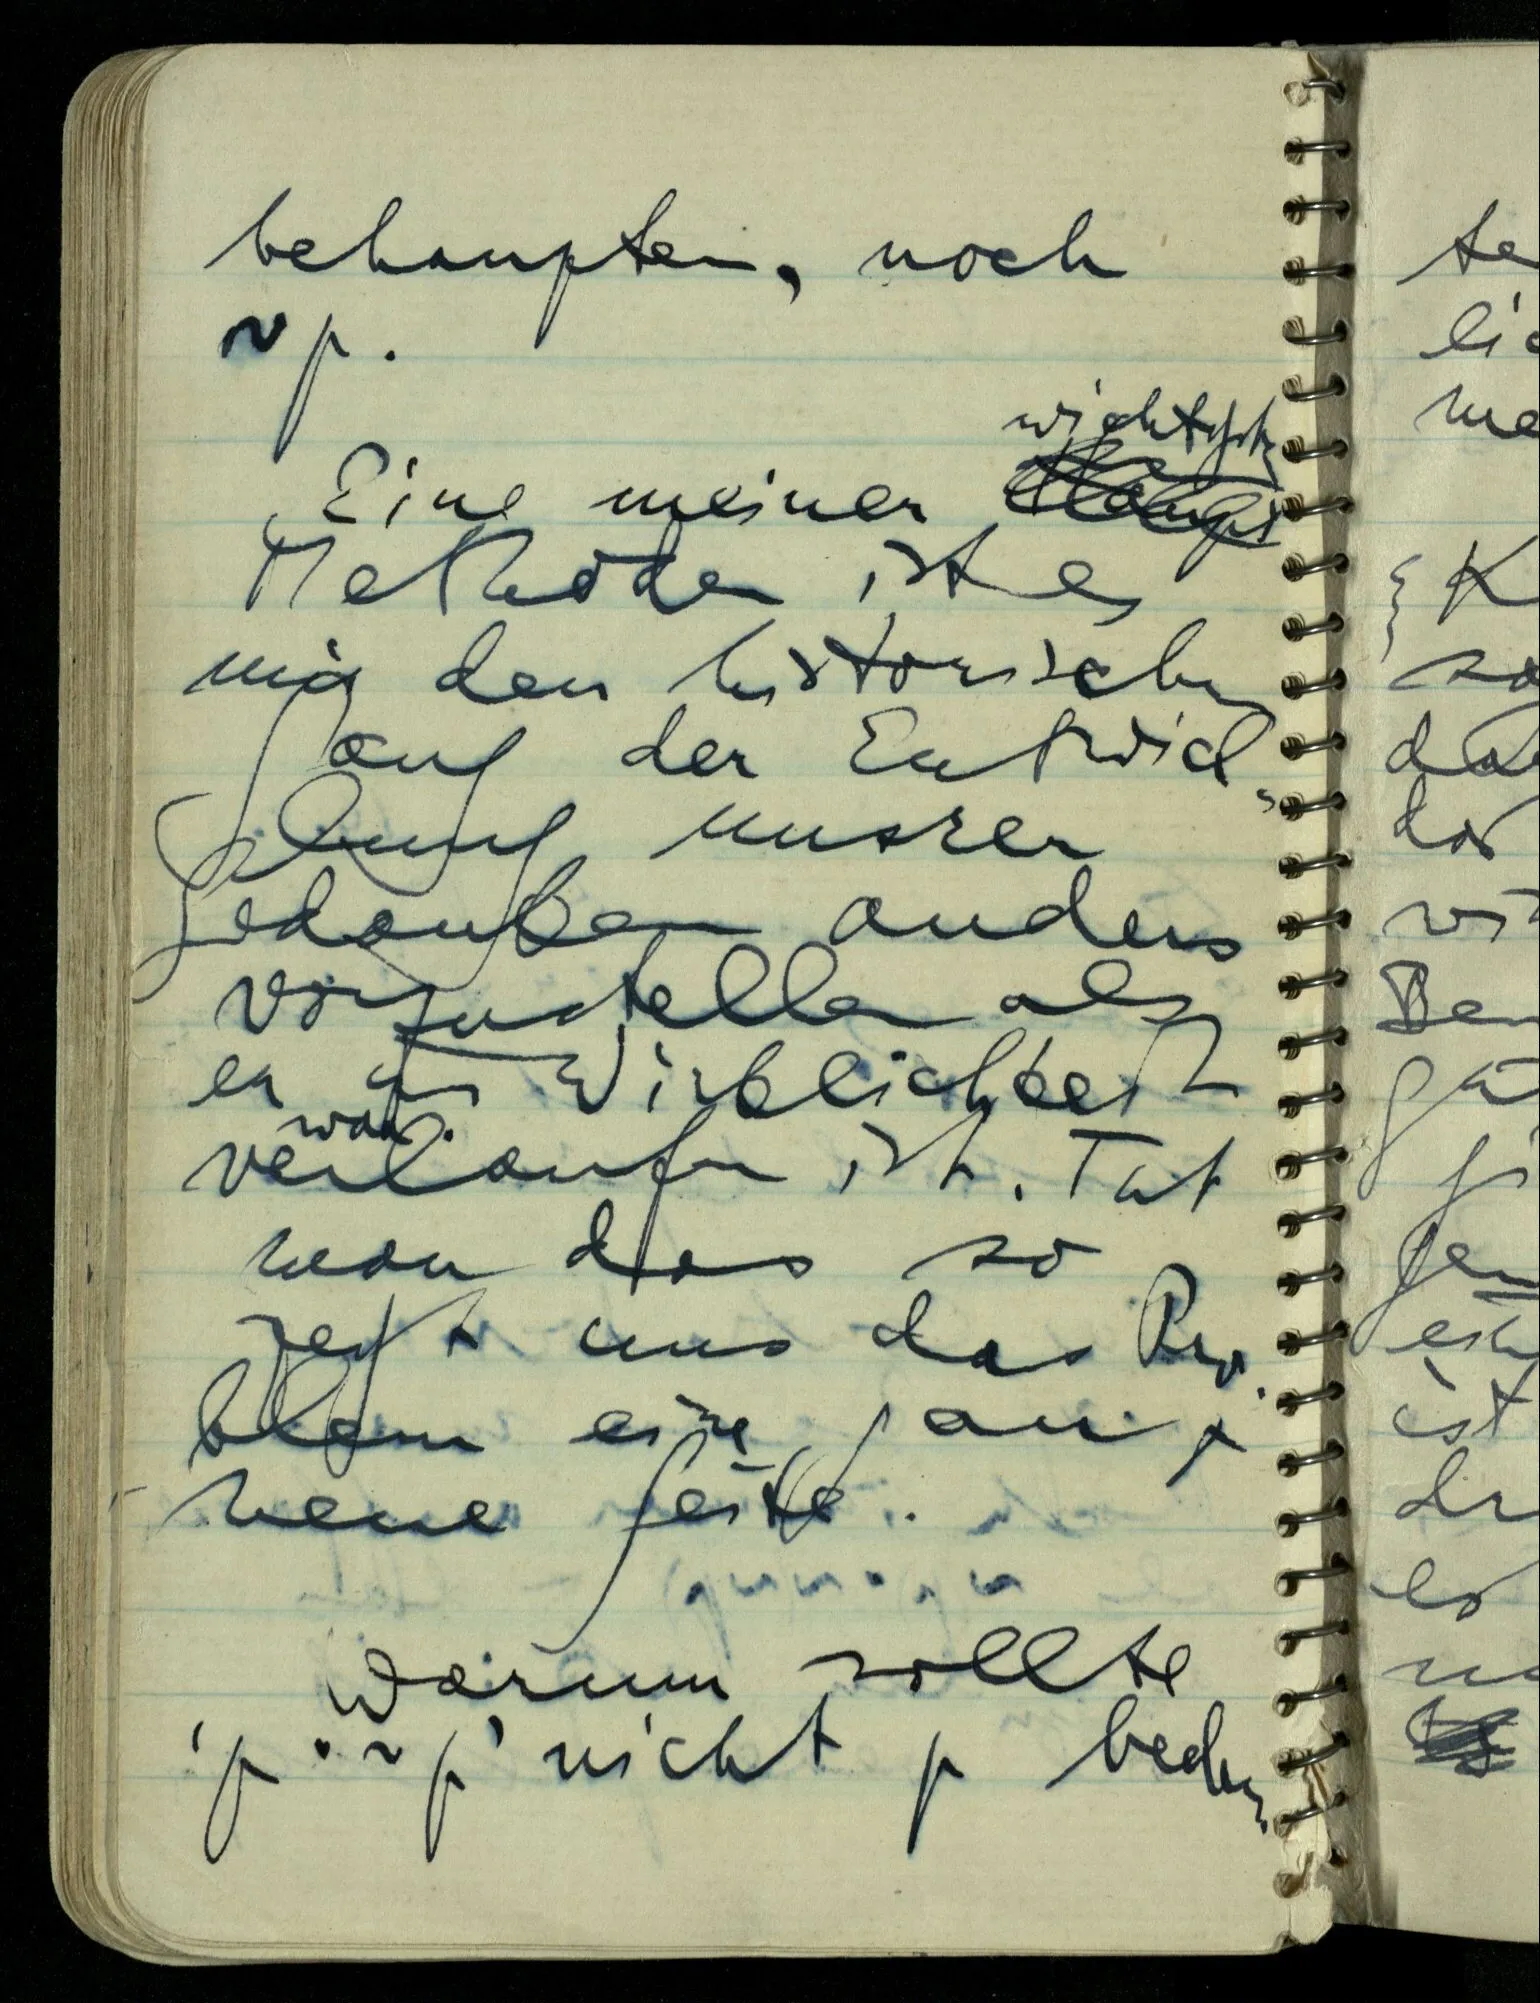 behaupten, noch
~p.
wichtigsten
Eine meiner
Methoden ist es
mir den historischen
Gang der Entwick„
lung unsrer
Gedanken anders
vorzustellen als
er in Wirklichkeit
war.
verlaufen ist. Tut
man das so
zeigt uns das Pro„
blem eine ganz
neue Seite.
Warum sollte
'p . ~p' nicht p bedeu„
te
lic
me
K
so
da
das
Be
ist